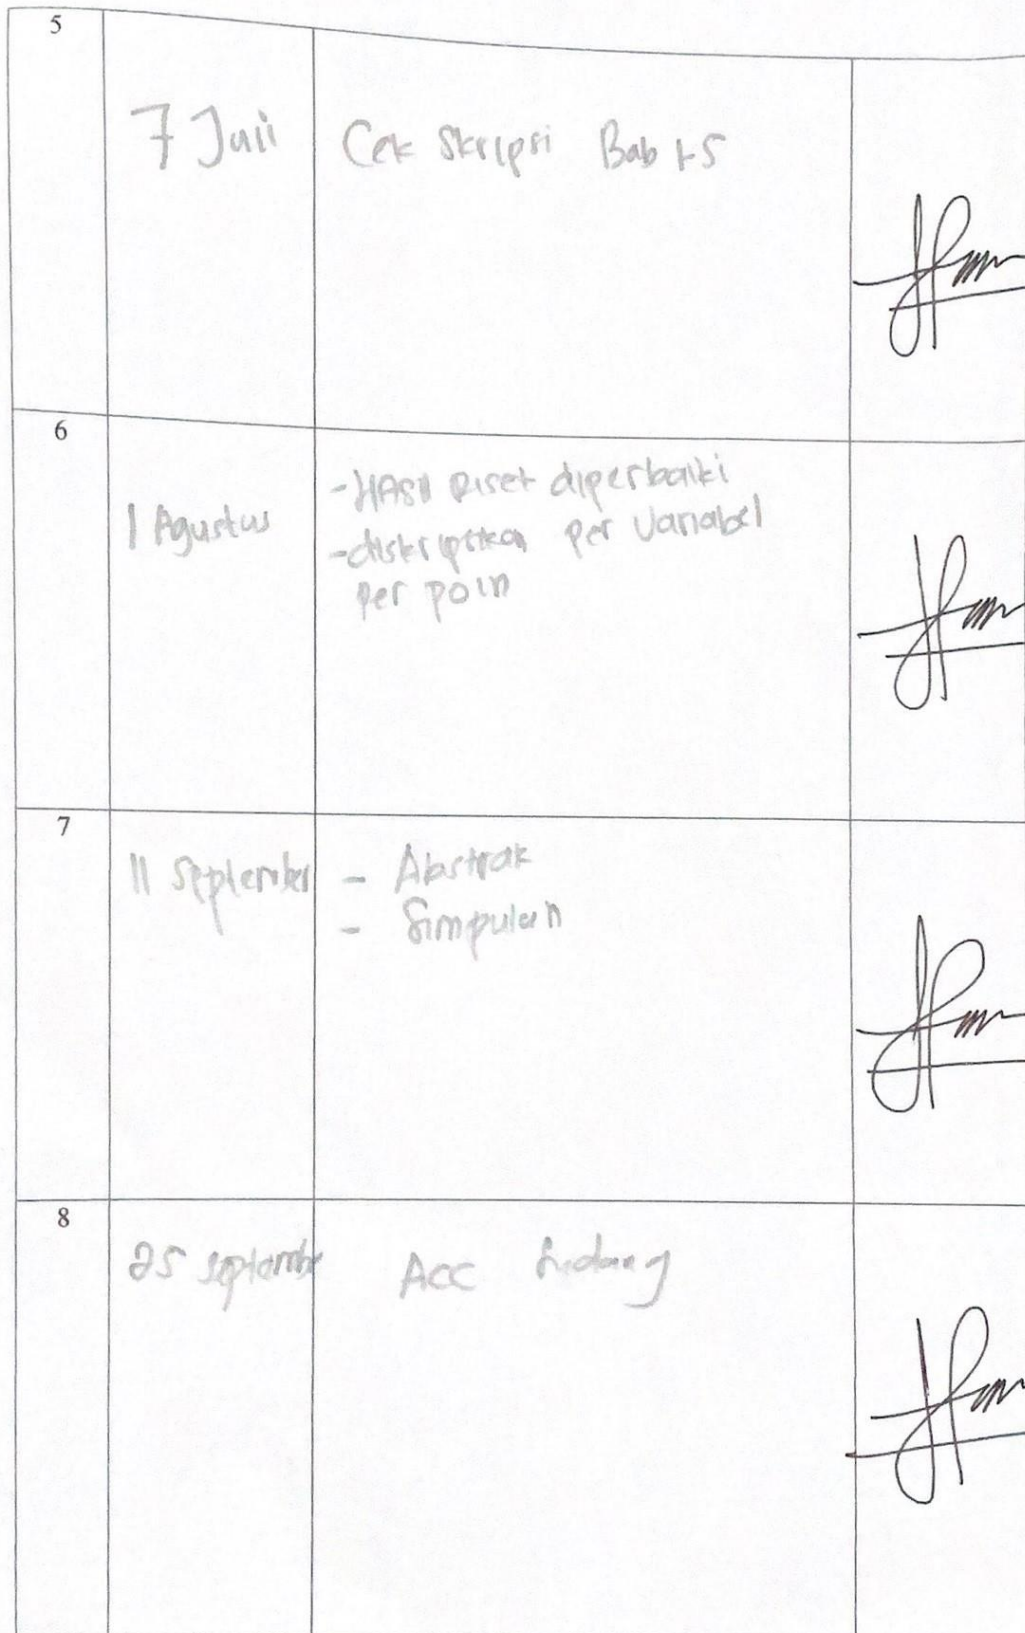 5
7 Juli Cek Skripsi Bab 1-5
6
1 Agustus
- HASIl Riset diperbaiki
- diskripsikan per Variabel
per poin
7
11 September - Abstrak
- Simpulan
8
25 septembe Acc Sidang